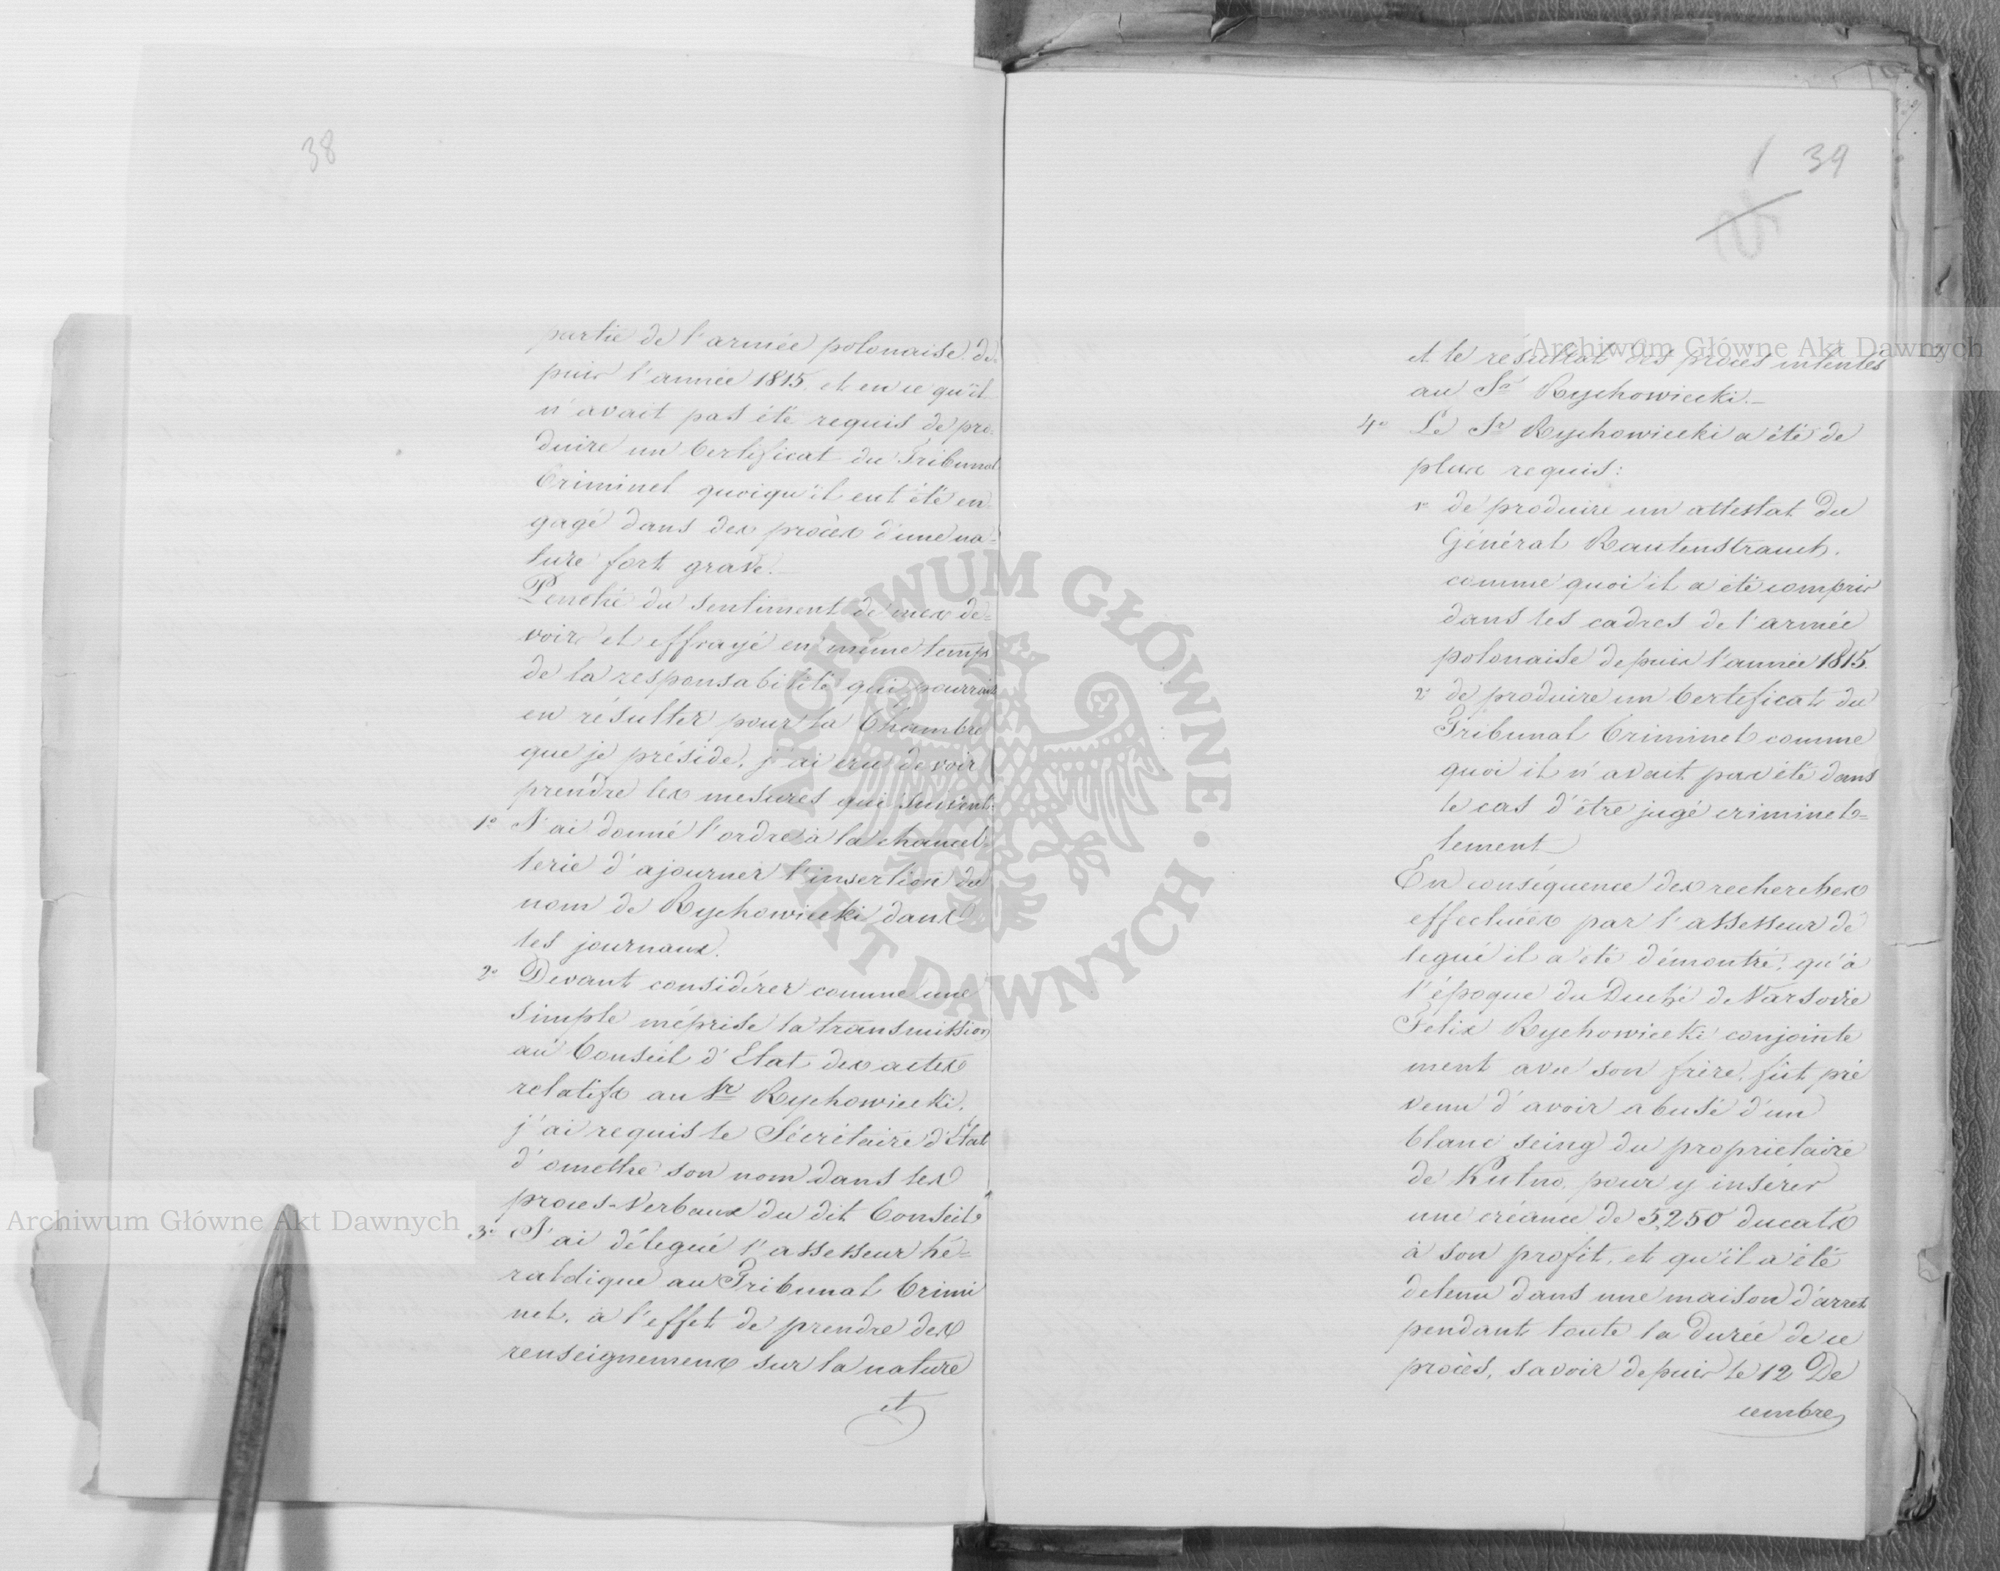 38
partie de l'armée polonaise de=
puis l'année 1815. et en ce qu'il
n'avait pas été requis de pro=
duire un Certificat du Tribunal
Criminel quoiqu'il eut été en=
gagé dans des procès d'une na=
ture fort grave.
Penetré du sentiment de mes de=
voirs et effrayé en même temps
de la responsabilité qui pourrait
en résulter pour la Chambre
que je préside, j'ai cru devoir
prendre les mesures qui suivent.
1° J'ai donné l'ordre à la chancel=
lerie d'ajourner l'insertion du
nom de Rychowiecki dans
les journaux.
2° Devant considérer comme une
simple méprise la transmission
au Conseil d'Etat des actes
relatifs au Sr Rychowiecki,
j'ai requis le Sécrétaire d'Etat
d'omettre son nom dans les
procès-Verbaux du dit Conseil.
3° J'ai délegué l'assesseur hé=
raldique au Tribunal Crimi
nel, à l'effet de prendre des
renseignemens sur la nature
et
1 39
et le résultat des procès intentés
au Sr Rychowiecki.—
4° Le Sr Rychowiecki a été de
plus requis:
1° de produire un attestat du
Général Rautenstrauch,
comme quoi il a été compris
dans les cadres de l'armée
polonaise depuis l'année 1815.
2° de produire un Certificat du
Tribunal Criminel comme
quoi il n'avait pas été dans
le cas d'être jugé criminel=
lement
En conséquence des recherches
effectuées par l'assesseur dé
legué il a été démontré, qu'à
l'époque du Duché de Varsovie
Felix Rychowiecki conjointe
ment avec son frère, fût pré
venu d'avoir abusé d'un
blanc seing du proprietaire
de Kutno, pour y insérer
une créance de 5,250 ducats
à son profit, et qu'il a été
detenu dans une maison d'arret
pendant toute la durée de ce
procès, savoir depuis le 12 De
cembre
Archiwum Główne Akt Dawnych
Archiwum Główne Akt Dawnych
ARCHIWUM GŁÓWNE · AKT DAWNYCH ·